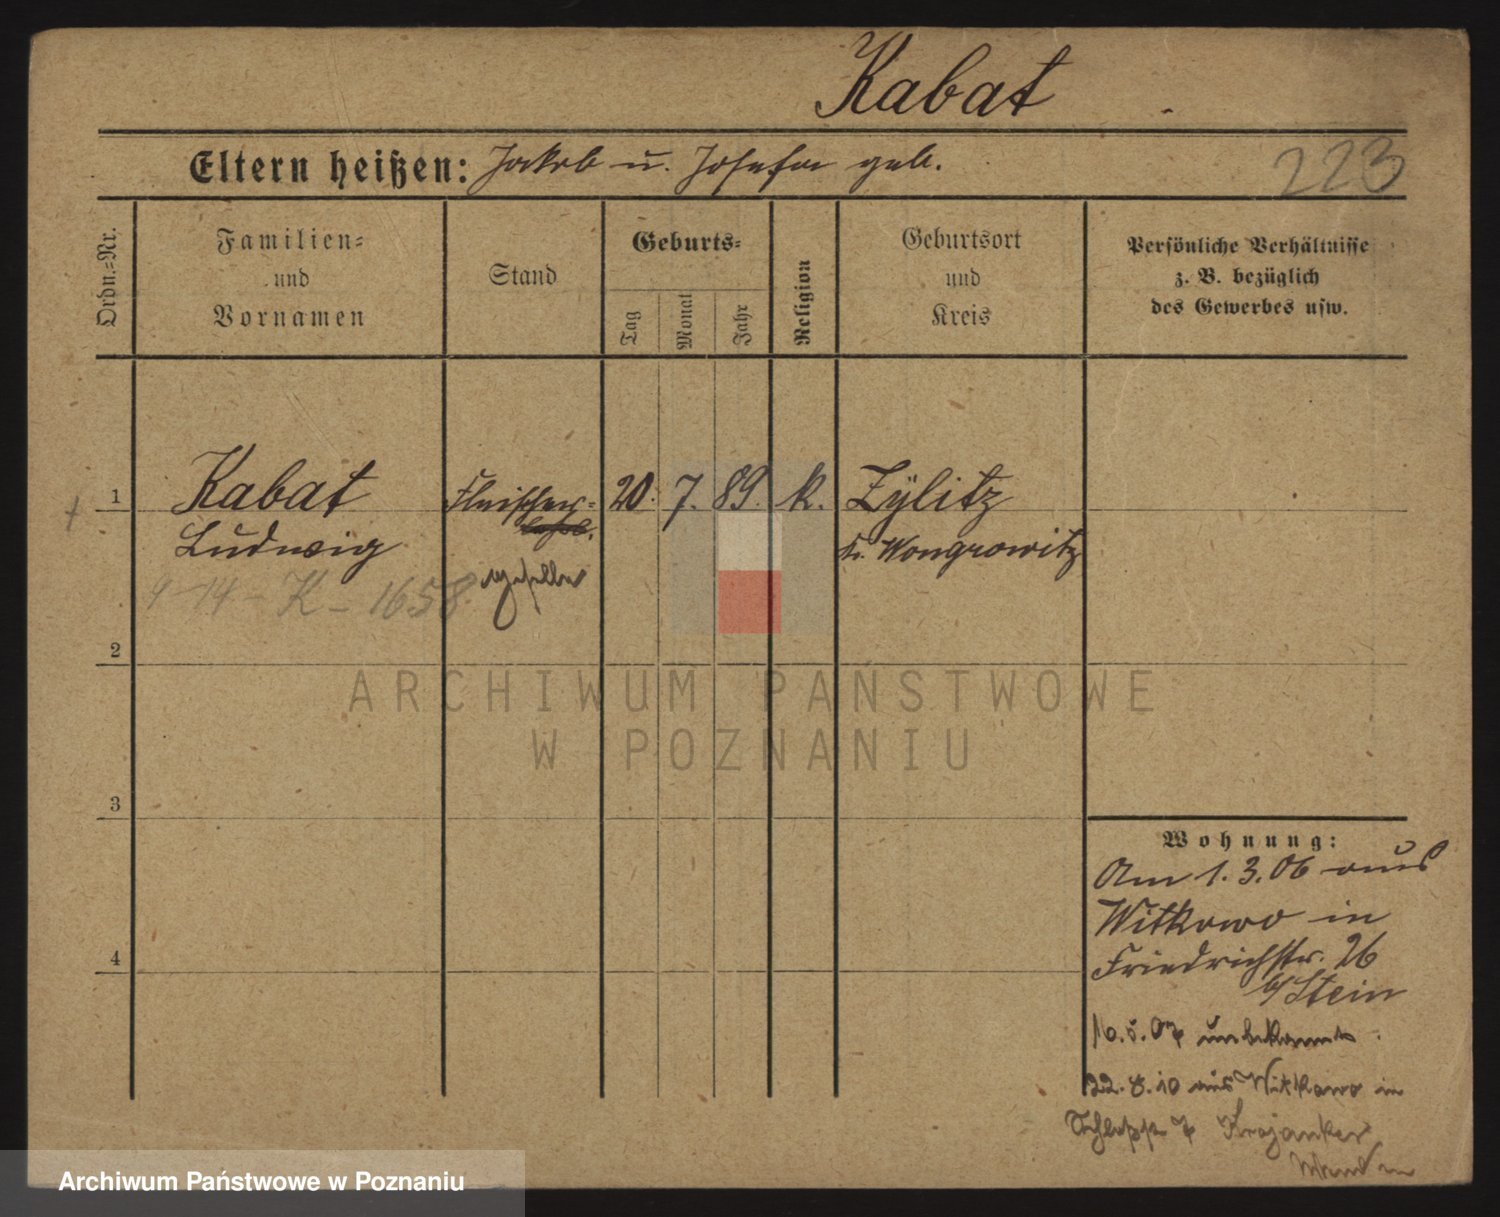 Kabat
Eltern heißen: Jakob u. Josefa geb.
223
Ordn.-Nr.
Familien-
und
Vornamen
Stand
Geburts-
Tag
Monat
Jahr
Religion
Geburtsort
und
Kreis
Persönliche Verhältnisse
z. B. bezüglich
des Gewerbes usw.
1 Kabat Fleischer- 20. 7. 89. k. Zÿlitz
Ludwig
Kr. Wongrowitz
geselle
9-14-K-1658
2
ARCHIWUM PAŃSTWOWE
W POZNANIU
3
4
Wohnung:
Am 1.3.06 aus
Witkowo in
Friedrichstr. 26
b/Stein
16.5.07 unbekannt.
22.8.10 aus Witkowo in
Krojanker
Archiwum Państwowe w Poznaniu